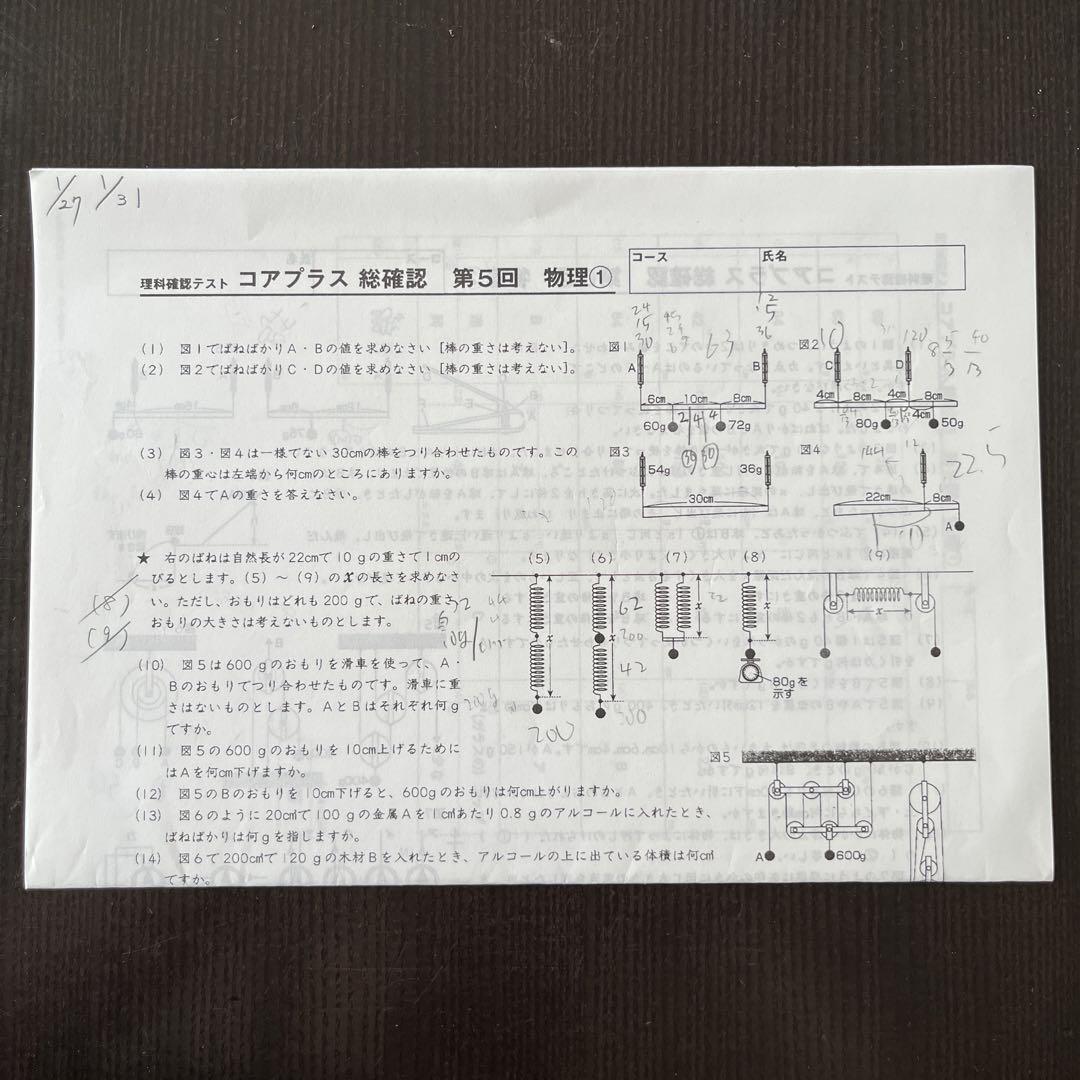 1/27 1/31
コース
氏名
理科確認テスト コアプラス 総確認 第5回 物理①
(1) 図1でばねばかりA・Bの値を求めなさい［棒の重さは考えない］。
(2) 図2でばねばかりC・Dの値を求めなさい［棒の重さは考えない］。
(3) 図3・図4は一様でない30cmの棒をつり合わせたものです。この
棒の重心は左端から何cmのところにありますか。
(4) 図4でAの重さを答えなさい。
図1
A
B
6cm 10cm 8cm
60g 72g
図2
C
D
4cm 8cm 4cm 8cm
4cm
80g 50g
図3
54g 36g
30cm
図4
22cm 8cm
A
22.5
★ 右のばねは自然長が22cmで10gの重さで1cmの
びるとします。(5)～(9)のxの長さを求めなさ
い。ただし、おもりはどれも200gで、ばねの重さ、
おもりの大きさは考えないものとします。
(8)
(9)
10g/1cm
(5) (6) (7) (8) (9)
x x x x x
62
200
42
200
80gを
示す
(10) 図5は600gのおもりを滑車を使って、A・
Bのおもりでつり合わせたものです。滑車に重
さはないものとします。AとBはそれぞれ何g
ですか。
(11) 図5の600gのおもりを10cm上げるために
はAを何cm下げますか。
(12) 図5のBのおもりを10cm下げると、600gのおもりは何cm上がりますか。
(13) 図6のように20cm³で100gの金属Aを1cm³あたり0.8gのアルコールに入れたとき、
ばねばかりは何gを指しますか。
(14) 図6で200cm³で120gの木材Bを入れたとき、アルコールの上に出ている体積は何cm³
ですか。
図5
A 600g